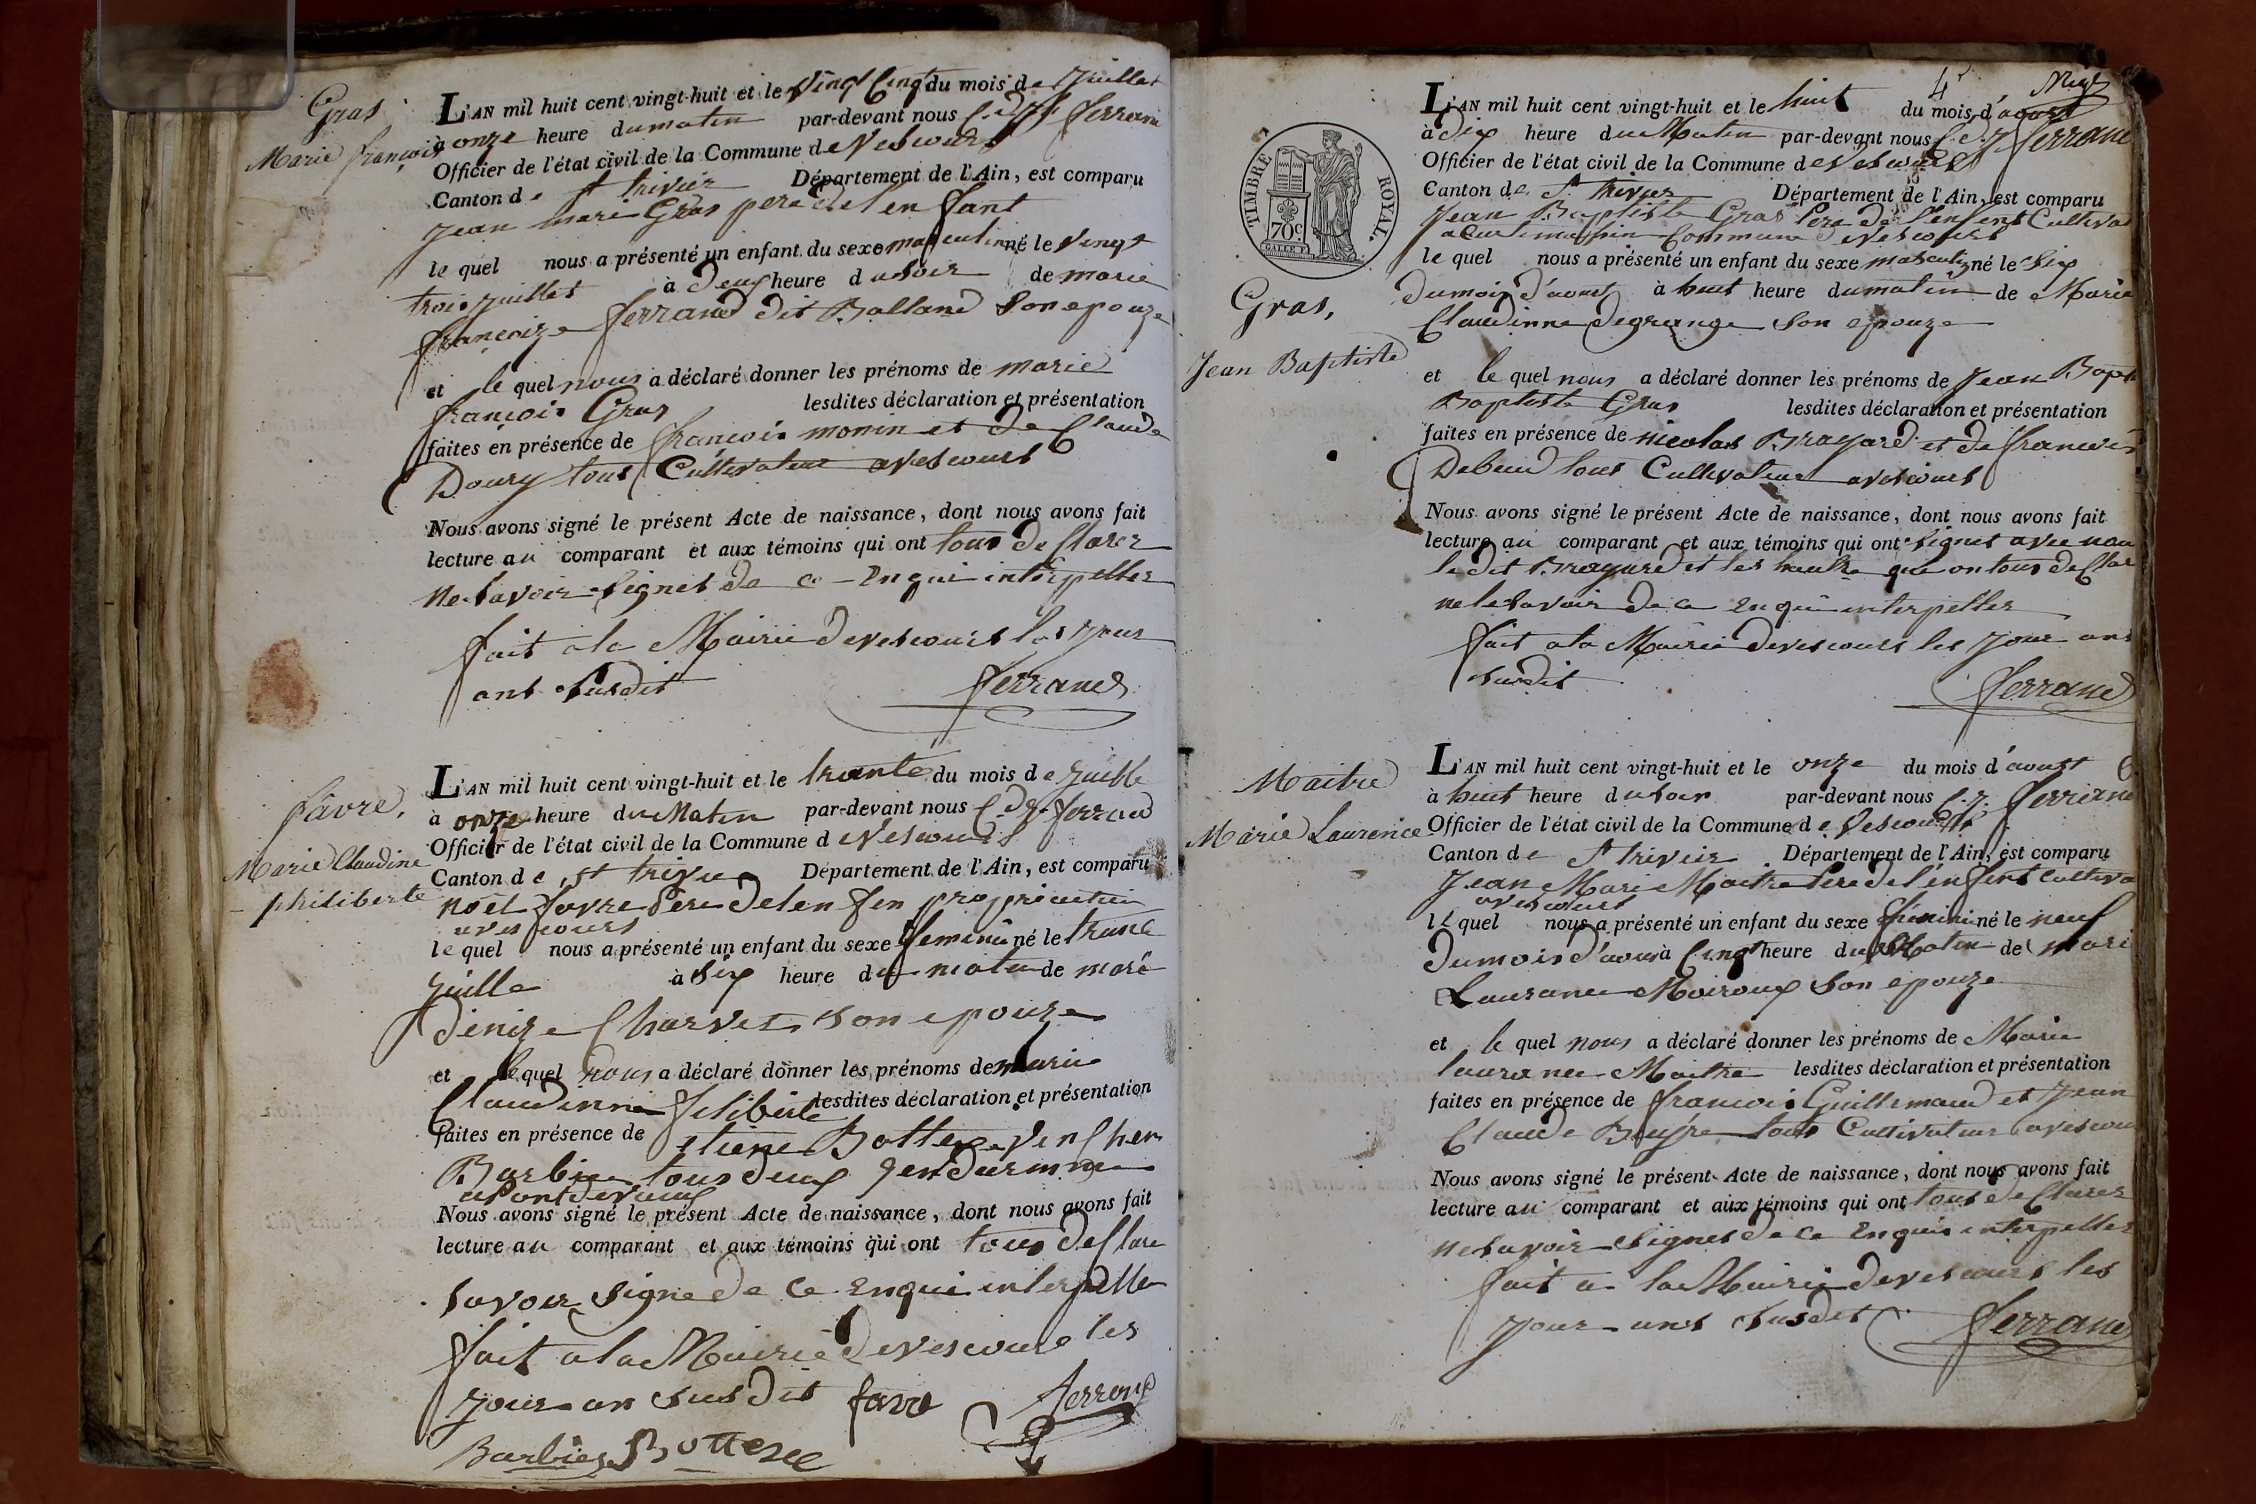 Gras
Marie françois
L'AN mil huit cent vingt-huit et le vingt Cinq du mois de Juillet
à onze heure du matin par-devant nous C. d. J. ferrand
Officier de l'état civil de la Commune de Vescours
Canton de St trivier Département de l'Ain, est comparu
Jean mari Gras pere del en fant
le quel nous a présenté un enfant du sexe masculin né le vingt
trois Juillet à deux heure du soir de marie
françoize ferrand dit Balland son epouze
et le quel nous a déclaré donner les prénoms de marie
françois Gras lesdites déclaration et présentation
faites en présence de francois monin et de Claude
Doury tous Cultivateur avescours
Nous avons signé le présent Acte de naissance, dont nous avons fait
lecture au comparant et aux témoins qui ont tous de Clarer
ne savoir signer de ce Enqui interpeller
fait ala Mairie devescours les jour
ans susdit
ferrand
fâvre,
Marie Claudine
philiberte
L'AN mil huit cent vingt-huit et le trante du mois de Juille
à onze heure du Matin par-devant nous C. d. J. ferrand
Officier de l'état civil de la Commune de Vescours
Canton de St trivier Département de l'Ain, est comparu
noël favre Pere delen fen proprieettere
avescours
le quel nous a présenté un enfant du sexe feminin né le trante
Juille à six heure du matin de marie
denize Charvet son epouze
et le quel nous a déclaré donner les prénoms de marie
Claudinne felibert lesdites déclaration et présentation
faites en présence de etiene Bottex
Barbier tous deux Jendarme
apontdevaux
Nous avons signé le présent Acte de naissance, dont nous avons fait
lecture au comparant et aux témoins qui ont tous de Clare
savoir signe de ce Enqui interpelle
fait ala Mairie devescours les
jour an susdit favre ferrand
Barbier Bottex
4
L'AN mil huit cent vingt-huit et le huit du mois d'aoust
à dix heure du Matin par-devant nous C. d. J. ferrand
Officier de l'état civil de la Commune de Vescours
Canton de St trivier Département de l'Ain, est comparu
Jean Baptiste Gras Pere de l'enfent Cultivat
Commune de Vescours
le quel nous a présenté un enfant du sexe masculin né le six
du mois d'aoust à huit heure du matin de Marie
Claudinne degrange son epouze
TIMBRE ROYAL.
70c
Gras,
Jean Baptiste
et le quel nous a déclaré donner les prénoms de Jean Bapt
Baptiste Gras lesdites déclaration et présentation
faites en présence de nicolas Brayard et de francois
Debeud tous Cultivateur avescours
Nous avons signé le présent Acte de naissance, dont nous avons fait
lecture au comparant et aux témoins qui ont signet avec nou
le dit Brayard et les que on tous de Clar
ne le savoir de ce Enqui interpeller
fait ala Mairie devescours les jour ans
susdit
ferrand
Maitre
Marie Laurence
L'AN mil huit cent vingt-huit et le onze du mois d'aoust
à huit heure du soir par-devant nous C. J. ferrand
Officier de l'état civil de la Commune de Vescours
Canton de St trivier Département de l'Ain, est comparu
Jean Mari Maitre Pere del'enfent Cultiva
avescours
le quel nous a présenté un enfant du sexe feminin né le neuf
dumois d'aout à Cinq heure du Matin de mari
Lauranee Moiroux son epouze
et le quel nous a déclaré donner les prénoms de Marie
lauranee Maitre lesdites déclaration et présentation
faites en présence de francois Guillemaud et Jean
Claude tous Cultivateur avescou
Nous avons signé le présent Acte de naissance, dont nous avons fait
lecture au comparant et aux témoins qui ont tous de Clarer
ne savoir signer de ce Enquis interpeller
fait a la Mairie devescours les
jour ans susdit ferrand